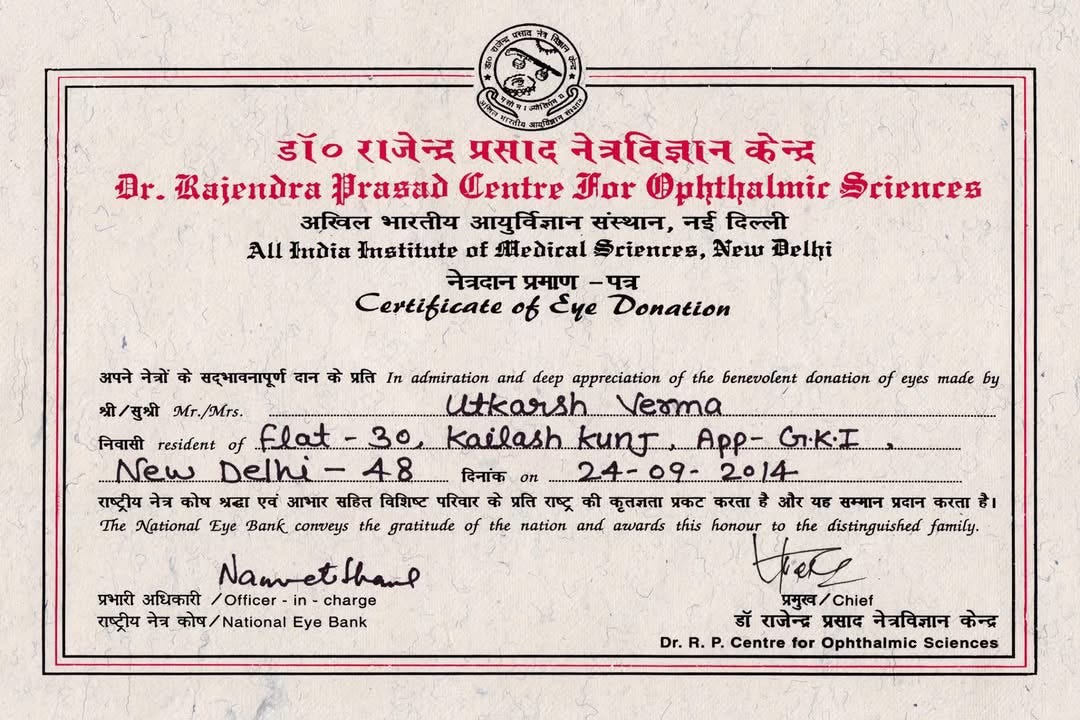 डॉ० राजेन्द्र प्रसाद नेत्र विज्ञान केन्द्र
अखिल भारतीय आयुर्विज्ञान संस्थान
डॉ० राजेन्द्र प्रसाद नेत्रविज्ञान केन्द्र
Dr. Rajendra Prasad Centre For Ophthalmic Sciences
अखिल भारतीय आयुर्विज्ञान संस्थान, नई दिल्ली
All India Institute of Medical Sciences, New Delhi
नेत्रदान प्रमाण - पत्र
Certificate of Eye Donation
अपने नेत्रों के सद्भावनापूर्ण दान के प्रति In admiration and deep appreciation of the benevolent donation of eyes made by
श्री/सुश्री Mr./Mrs. Utkarsh Verma
निवासी resident of Flat - 30, Kailash Kunj, App- G.K.I,
New Delhi - 48 दिनांक on 24-09-2014
राष्ट्रीय नेत्र कोष श्रद्धा एवं आभार सहित विशिष्ट परिवार के प्रति राष्ट्र की कृतज्ञता प्रकट करता है और यह सम्मान प्रदान करता है।
The National Eye Bank conveys the gratitude of the nation and awards this honour to the distinguished family.
प्रभारी अधिकारी /Officer - in - charge
राष्ट्रीय नेत्र कोष/National Eye Bank
प्रमुख/Chief
डॉ राजेन्द्र प्रसाद नेत्रविज्ञान केन्द्र
Dr. R. P. Centre for Ophthalmic Sciences